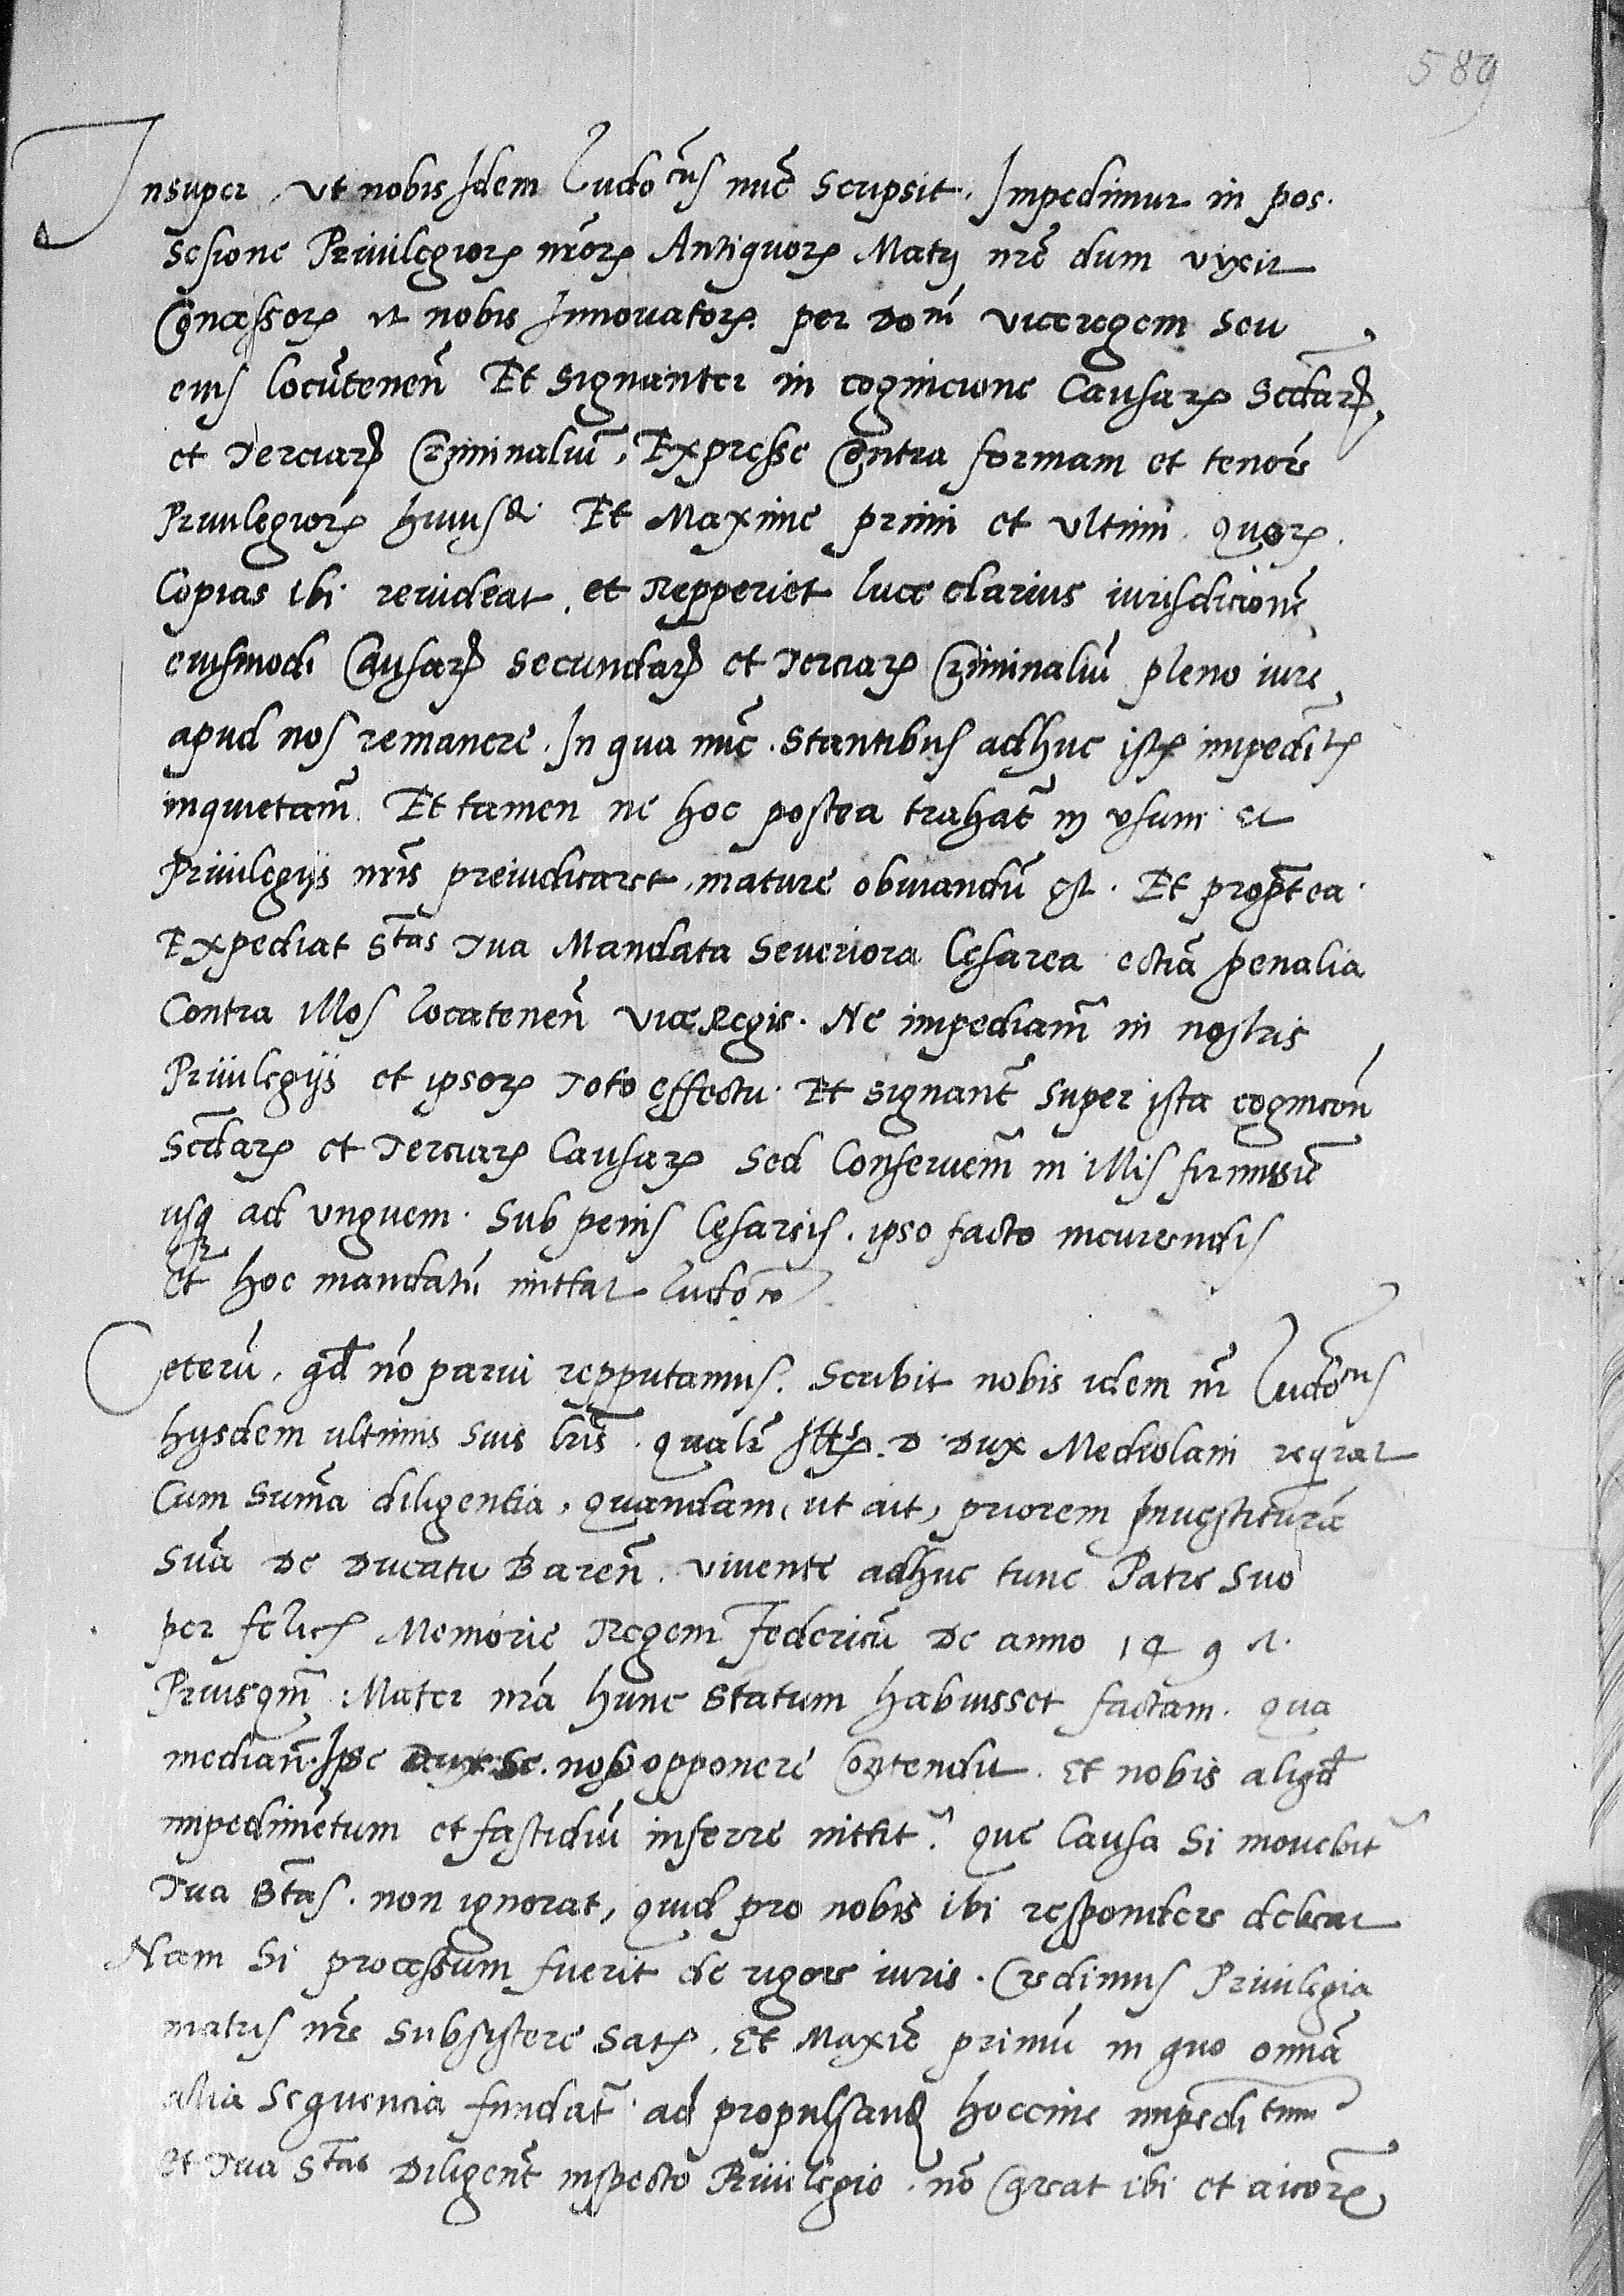 589
Insuper, ut nobis Idem Ludo^cus nuc̃ scripsit. Impedimur in pos-
sesione Priuilegiorꝝ nr̃orꝝ Antiquorꝝ Matrꝭ nr̃e dum vixit
Concessorꝝ et nobis Innouatorꝝ per do^m viceregem seu
eius locũtenen̄ Et signanter in cognicione Causarꝝ Scđarꝝ
et Terciarꝝ Criminaliũ, Expresse Contra formam et tenorẽ
Priuilegiorꝝ huius^di Et Maxime primi et ultimi. quorꝝ
Copias ibi reuideat. et Repperiet luce clarius iurisdicionẽ
eiusmodi Causarꝝ secundarꝝ et Terciarꝝ Criminaliũ pleno iure
apud nos remanere. In qua nuc̃. stantibus adhuc istꝭ impedĩtꝭ
inquietam̃. Et tamen ne hoc postea trahat̃ in usum et
Priuilegijs nr̃is preiudicaret, mature obuiandũ est. Et propt̃ea
Expediat S^tas Tua Mandata Seueriora Cesarea eciã penalia
Contra illos locatenen̄ Vice Regis. Ne impediam̃ in nostris
Priuilegijs et ipsorꝝ Toto effectu. Et signant̃ super ista cognicõn
Scđarꝝ et Terciarꝝ Causarꝝ Sed Conseruem̃ in illis firmissiẽ
usqꝫ ad unguem. Sub penis Cesareis. ipso facto incurrendis
Et hoc mandatũ mittat Ludo^co
Ceterũ, qđ nõ parui repputamus. Scribit nobis idem nr̃ Ludo^cus
hysdem ultimis suis lr̃is. qualr̃ D. Dux Mediolani reqrat
Cum Sum̃a diligentia, quandam, ut ait, priorem Inuestiturã
Suã De Ducatu Baren̄. viuente adhuc tunc Patre Suo
per felicꝭ Memorie Regem Federicũ De anno
Priusqm̃ Mater nr̃a hunc Statum habuisset factam. qua
median̄. Ipse Dux Se. nob opponere Contendit. Et nobis aliqđ
impedimẽtum et fastidiũ inferre nittit̃. que Causa Si mouebit̃
Tua S̃tas. non ignorat, quid pro nobis ibi respondere debeat
Nam Si processum fuerit de rigore iuris. Credimus Priuilegia
matris nr̃e Subsistere Satꝭ. Et Maxiẽ primũ in quo omña
alia Sequencia fundat̃ ad propulsand̃ hoccine impeditum
Et Tua S^tas Diligent̃ inspecto Priuilegio. nõ Careat ibi et